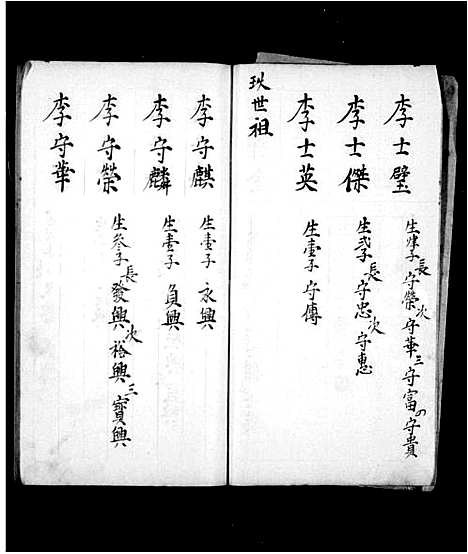 李士璧 生肆子 長守榮 次守華 三守富 四守貴
李士傑 生弍子 長守忠 次守惠
李士英 生壹子 守傳
玖世祖
李守麒 生壹子 永興
李守麟 生壹子 負興
李守榮 生叁子 長發興 次裕興 三寶興
李守華